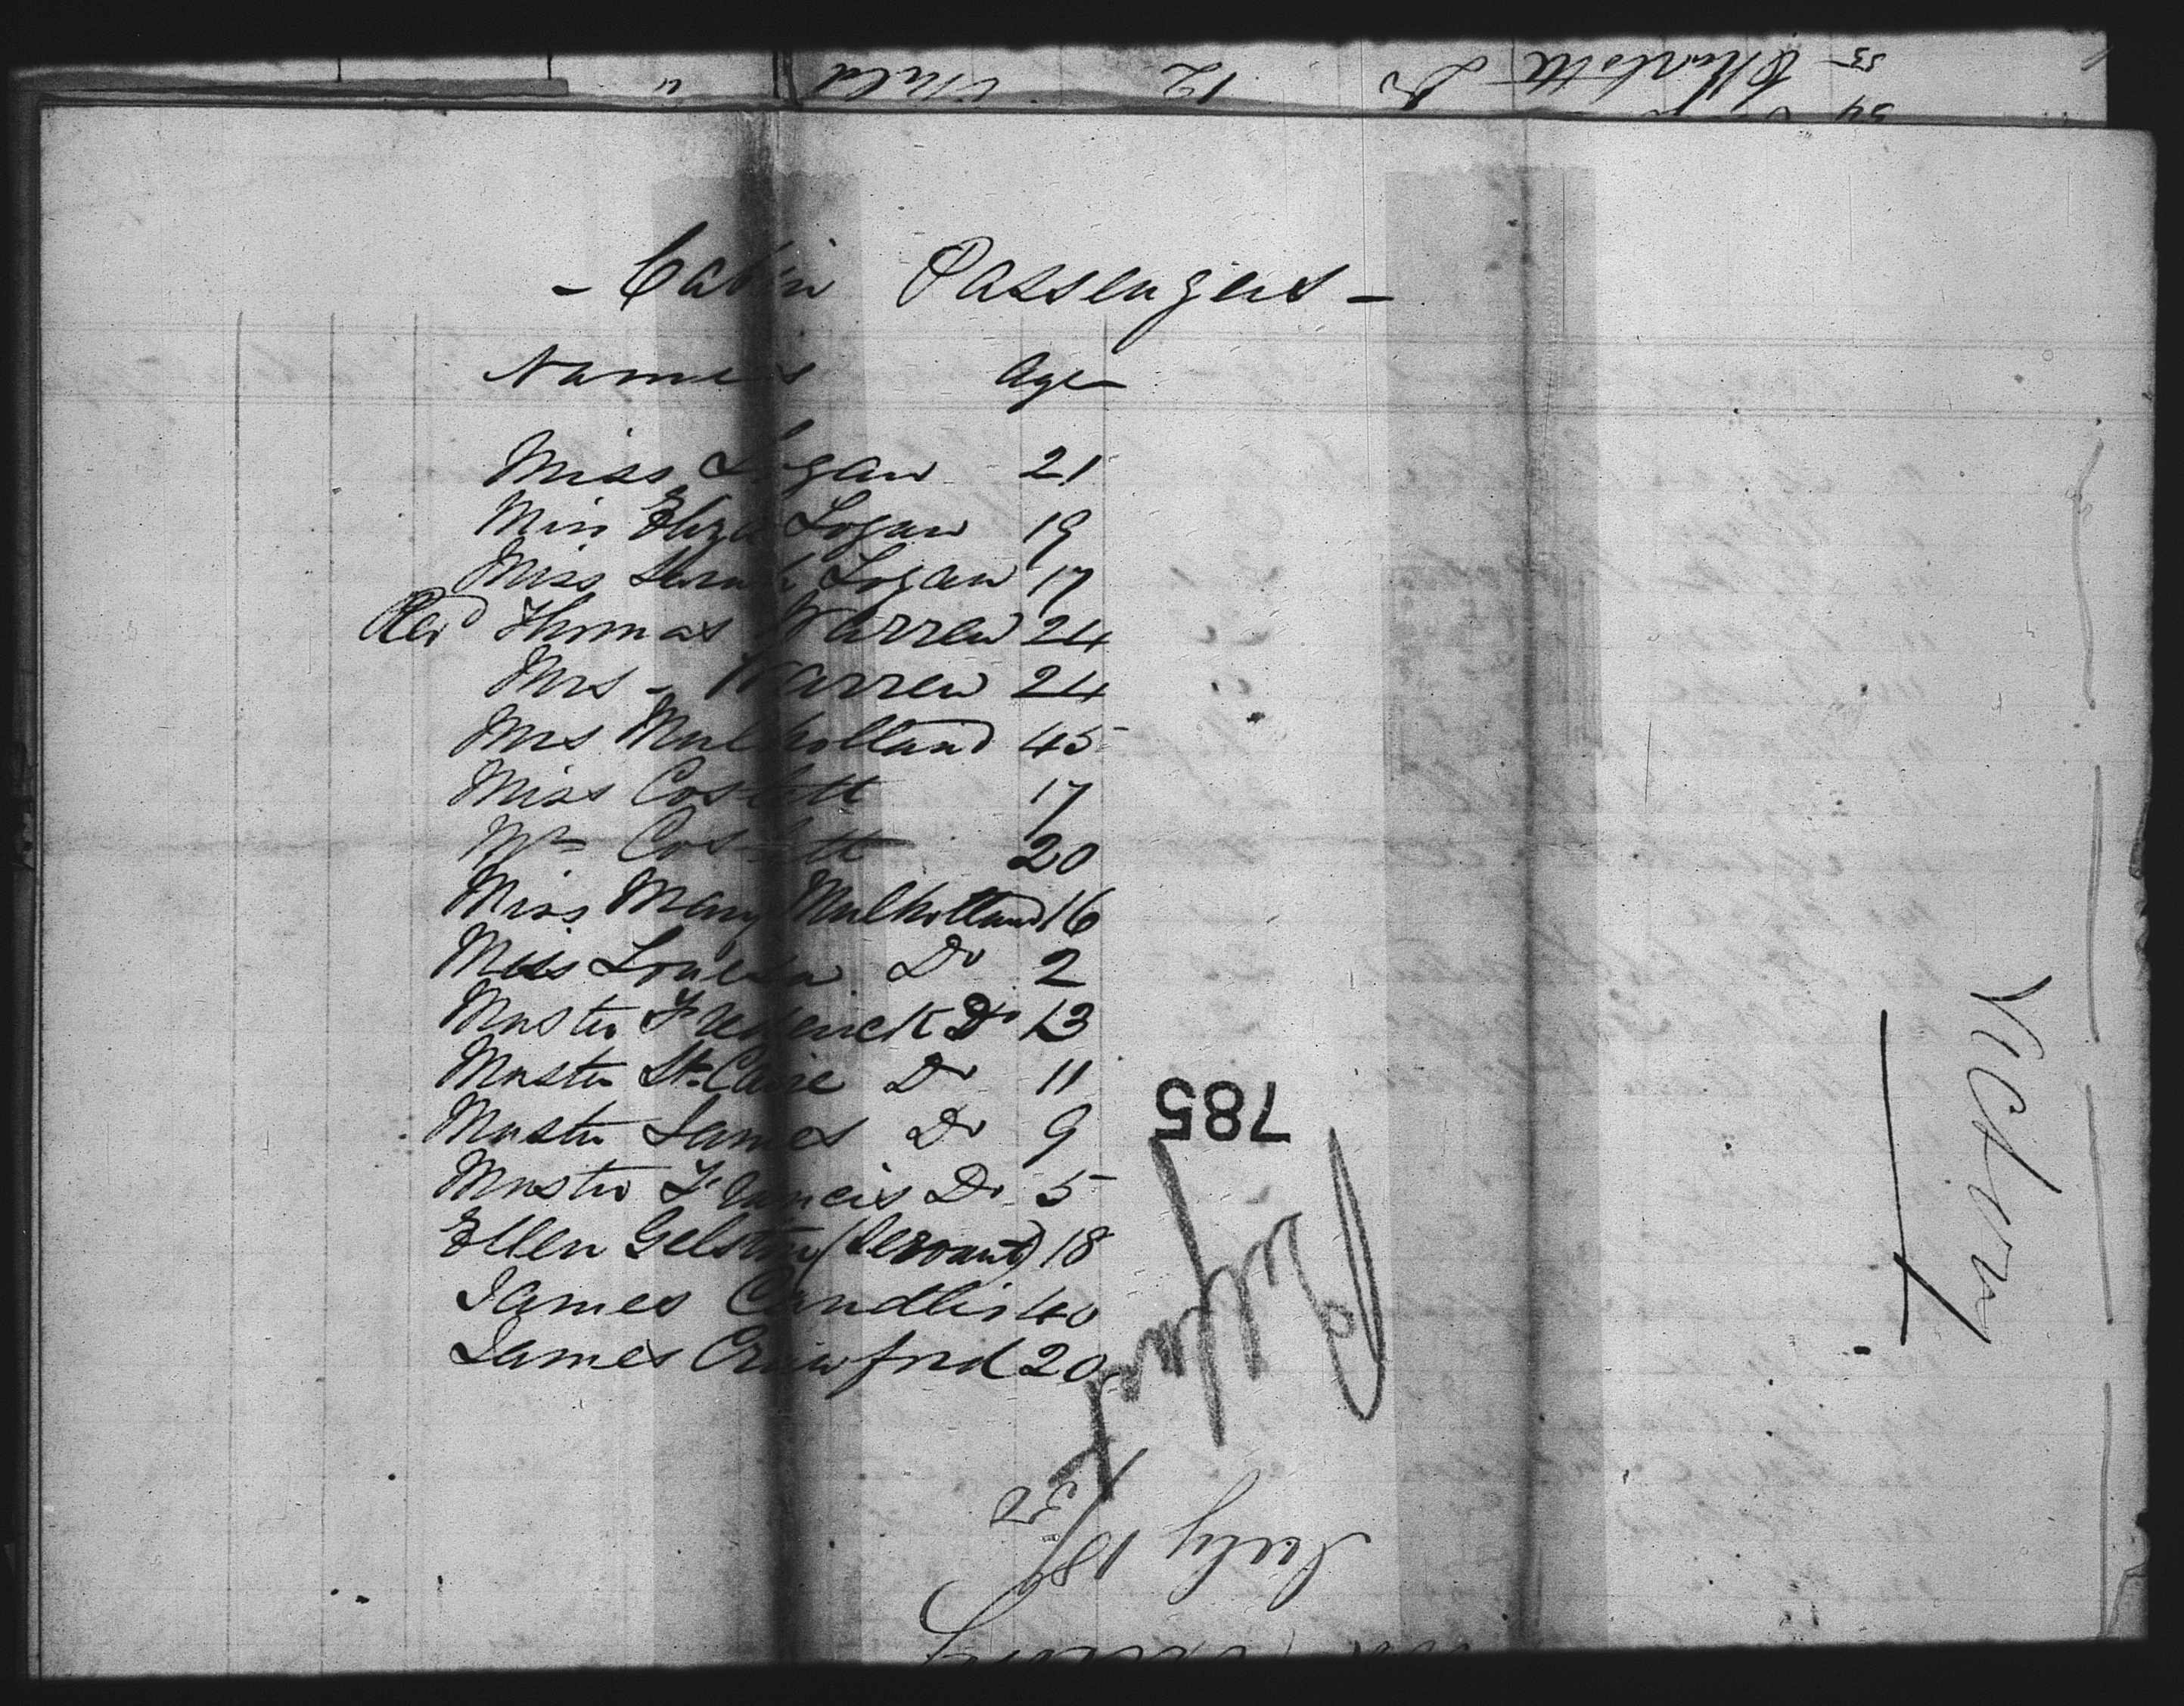 53 Charlotte Do 12 Child "
54
- Cabin Passengers -
Names Age
Miss Logan 21
Miss Eliza Logan 19
Miss Sarah Logan 17
Revd Thomas Warren 24
Mrs - Warren 24
Mrs Mulholland 45
Miss Coslett 17
Mr Coslett 20
Miss Mary Mulholland 16
Miss Louisa Do 2
Master Frederick Do 13
Master St Claire Do 11
Master James Do 9
Master Francis Do 5
Ellen Gelston (Servant) 18
James Candlis 40
James Crawford 20
785
Belfast
July 18/
Victory